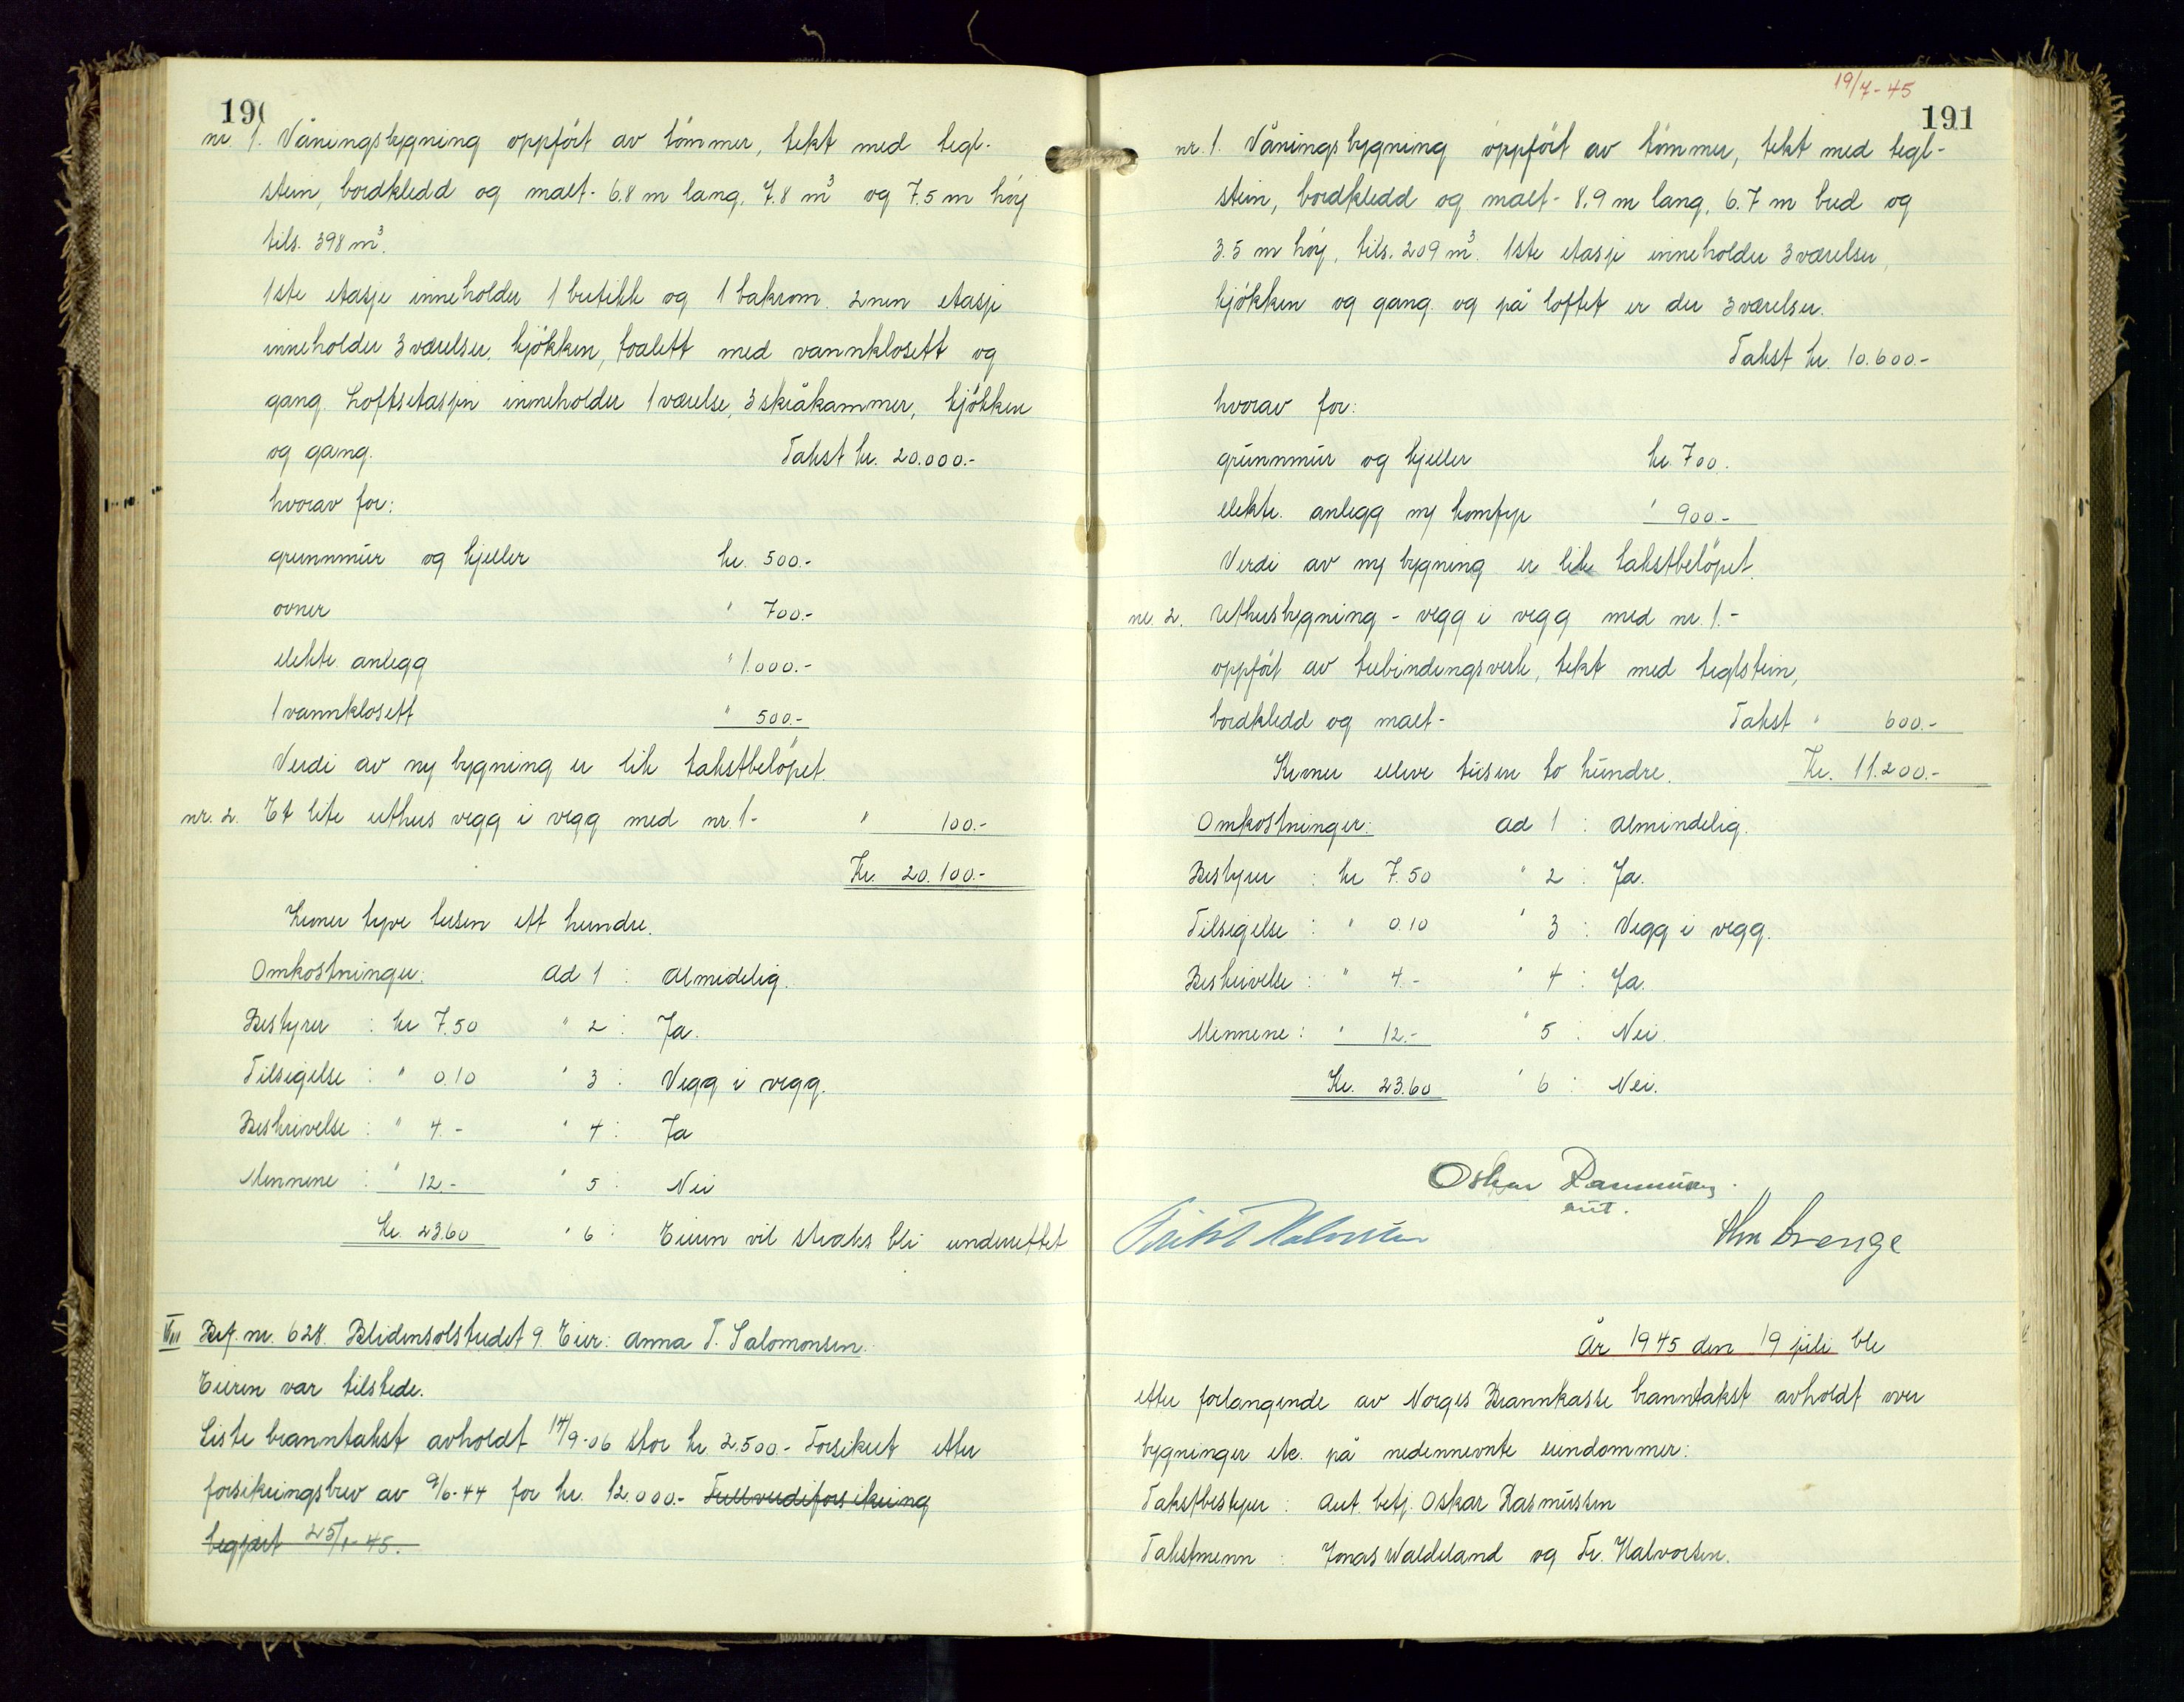 190
nr. 1. Våningsbygning oppført av tömmer, tekt med tegl-
stein, bordkledd og malt- 6.8 m lang, 7.8 m³ og 7.5 m höy
tils. 398 m³.
1ste etasje inneholder 1 butikk og 1 bakrom. 2nen etasje
inneholder 3 værelser, kjökken, toalett med vannklosett og
gang. Loftsetasjen inneholder 1 værelse, 3 skråkammer, kjökken
og gang. Takst kr. 20.000.-
hvorav for:
grunnmur og kjeller kr. 500.-
ovner " 700.-
elektr. anlegg " 1.000.-
1 vannklosett " 500.-
Verdi av ny bygning er lik takstbelöpet.
nr. 2. Et lite uthus vegg i vegg med nr. 1- " 100.-
Kr. 20.100.-
Kroner tyve tusen ett hundre.
Omkostninger: Ad 1 : Almedelig.
Bestyrer : kr 7.50 " 2 : Ja.
Tilsigelse : " 0.10 " 3 : Vegg i vegg.
Beskrivelse : " 4.- " 4 : Ja
Mennene : " 12.- " 5 : Nei
Kr. 23.60 " 6 : Eieren vil straks bli underrettet
VIII Bef. nr. 628. Blidensolstredet 9. Eier: Anna T. Salomonsen.
Eieren var tilstede.
Siste branntakst avholdt 14/9-06 stor kr. 2.500.- Forsikret etter
forsikringsbrev av 9/6-44 for kr. 12.000.- Fullverdiforsikring
begjært 25/1-45.
19/7-45
191
nr. 1. Våningsbygning oppfört av tömmer, tekt med tegl-
stein, bordkledd og malt- 8.9 m lang, 6.7 m bred og
3.5 m höy, tils. 209 m³. 1ste etasje inneholder 3 værelser,
kjökken og gang. og på loftet er der 3 værelser.
Takst kr. 10.600.-
hvorav for:
grunnmur og kjeller kr. 700.
elektr. anlegg m/ komfyr " 900.-
Verdi av ny bygning er lik takstbelöpet.
nr. 2. Uthusbygning - vegg i vegg med nr. 1.-
oppfört av trebindingsverk, tekt med teglstein,
bordkledd og malt- Takst " 600.-
Kroner elleve tusen to hundre. Kr. 11.200.-
Omkostninger: Ad 1 : Almindelig.
Bestyrer : kr 7.50 " 2 : Ja.
Tilsigelse : " 0.10 " 3 : Vegg i vegg.
Beskrivelse : " 4.- " 4 : Ja.
Mennene : " 12.- " 5 : Nei.
Kr. 23.60 " 6 : Nei.
Oskar Rasmussen
aut.
År 1945 den 19 juli ble
etter forlangende av Norges Brannkasse branntakst avholdt over
bygninger etc. på nedennevnte eiendommer:
Takstbestyrer : Aut. betj. Oskar Rasmussen
Takstmenn : Jonas Waldeland og Fr. Halvorsen.